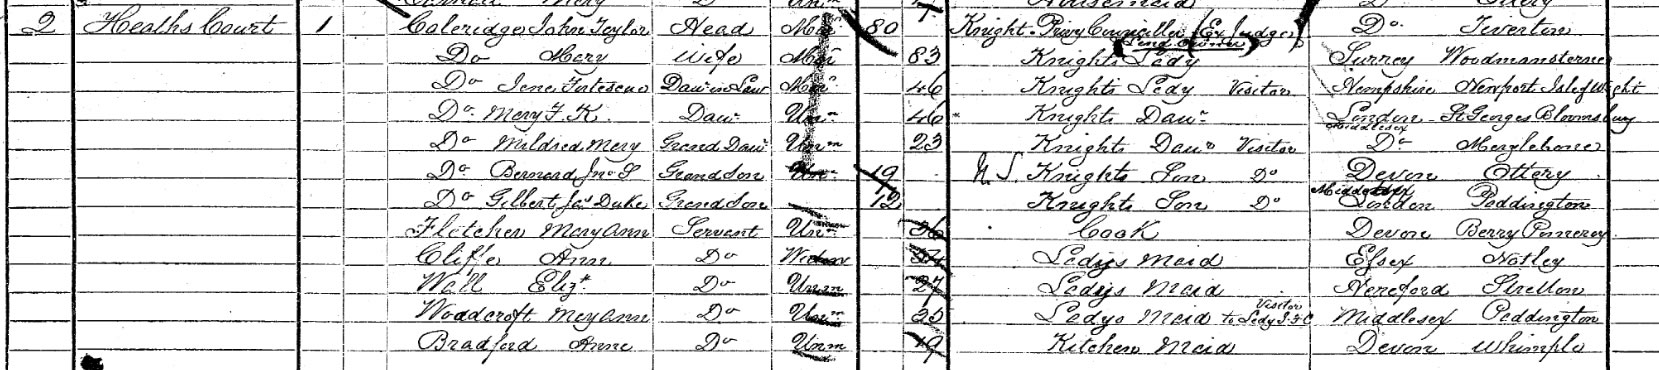 2 Heaths Court 1 Coleridge John Taylor Head Mar 80 Knight. Privy Councillor (Ex Judge) Land owner Do. Tiverton
Do Mary Wife Mar 83 Knights Lady Surrey Woodmansterne
Do Jane Fortescue Dau in Law Mar 46 Knights Lady Visitor Hampshire Newport Isle of Wight
Do Mary F. K. Daur Unm 46 Knights Daur London St Georges Bloomsbury
Do Mildred Mary Grand Daur Unm 23 Knights Daur Visitor Middlesex Do Marylebone
Do Bernard Jno S. Grandson Unm 19 Knights Son Do Devon Ottery
Do Gilbert Jas Duke Grandson 12 Knights Son Do Middlesex London Paddington
Fletcher Mary Ann Servant Unm 36 Cook Devon Berry Pomeroy
Cliffe Ann Do Widow Ladys Maid Essex Notley
Wall Elizh Do Unm 27 Ladys Maid Hereford Stretton
Woodcroft Mary Ann Do Unm Ladys Maid Visitor to Lady J. F. C Middlesex Paddington
Bradford Anne Do Unm 19 Kitchen Maid Devon Whimple